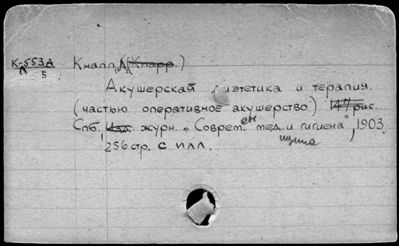 К-553А
5
Кнапп, Л (Knapp.)
Акушерская диэтетика и терапия.
(частью оперативное акушерство) 147 рис.
Спб. Изд. журн. „Соврем. мед. и гигиена", 1903.
256 стр. с илл.